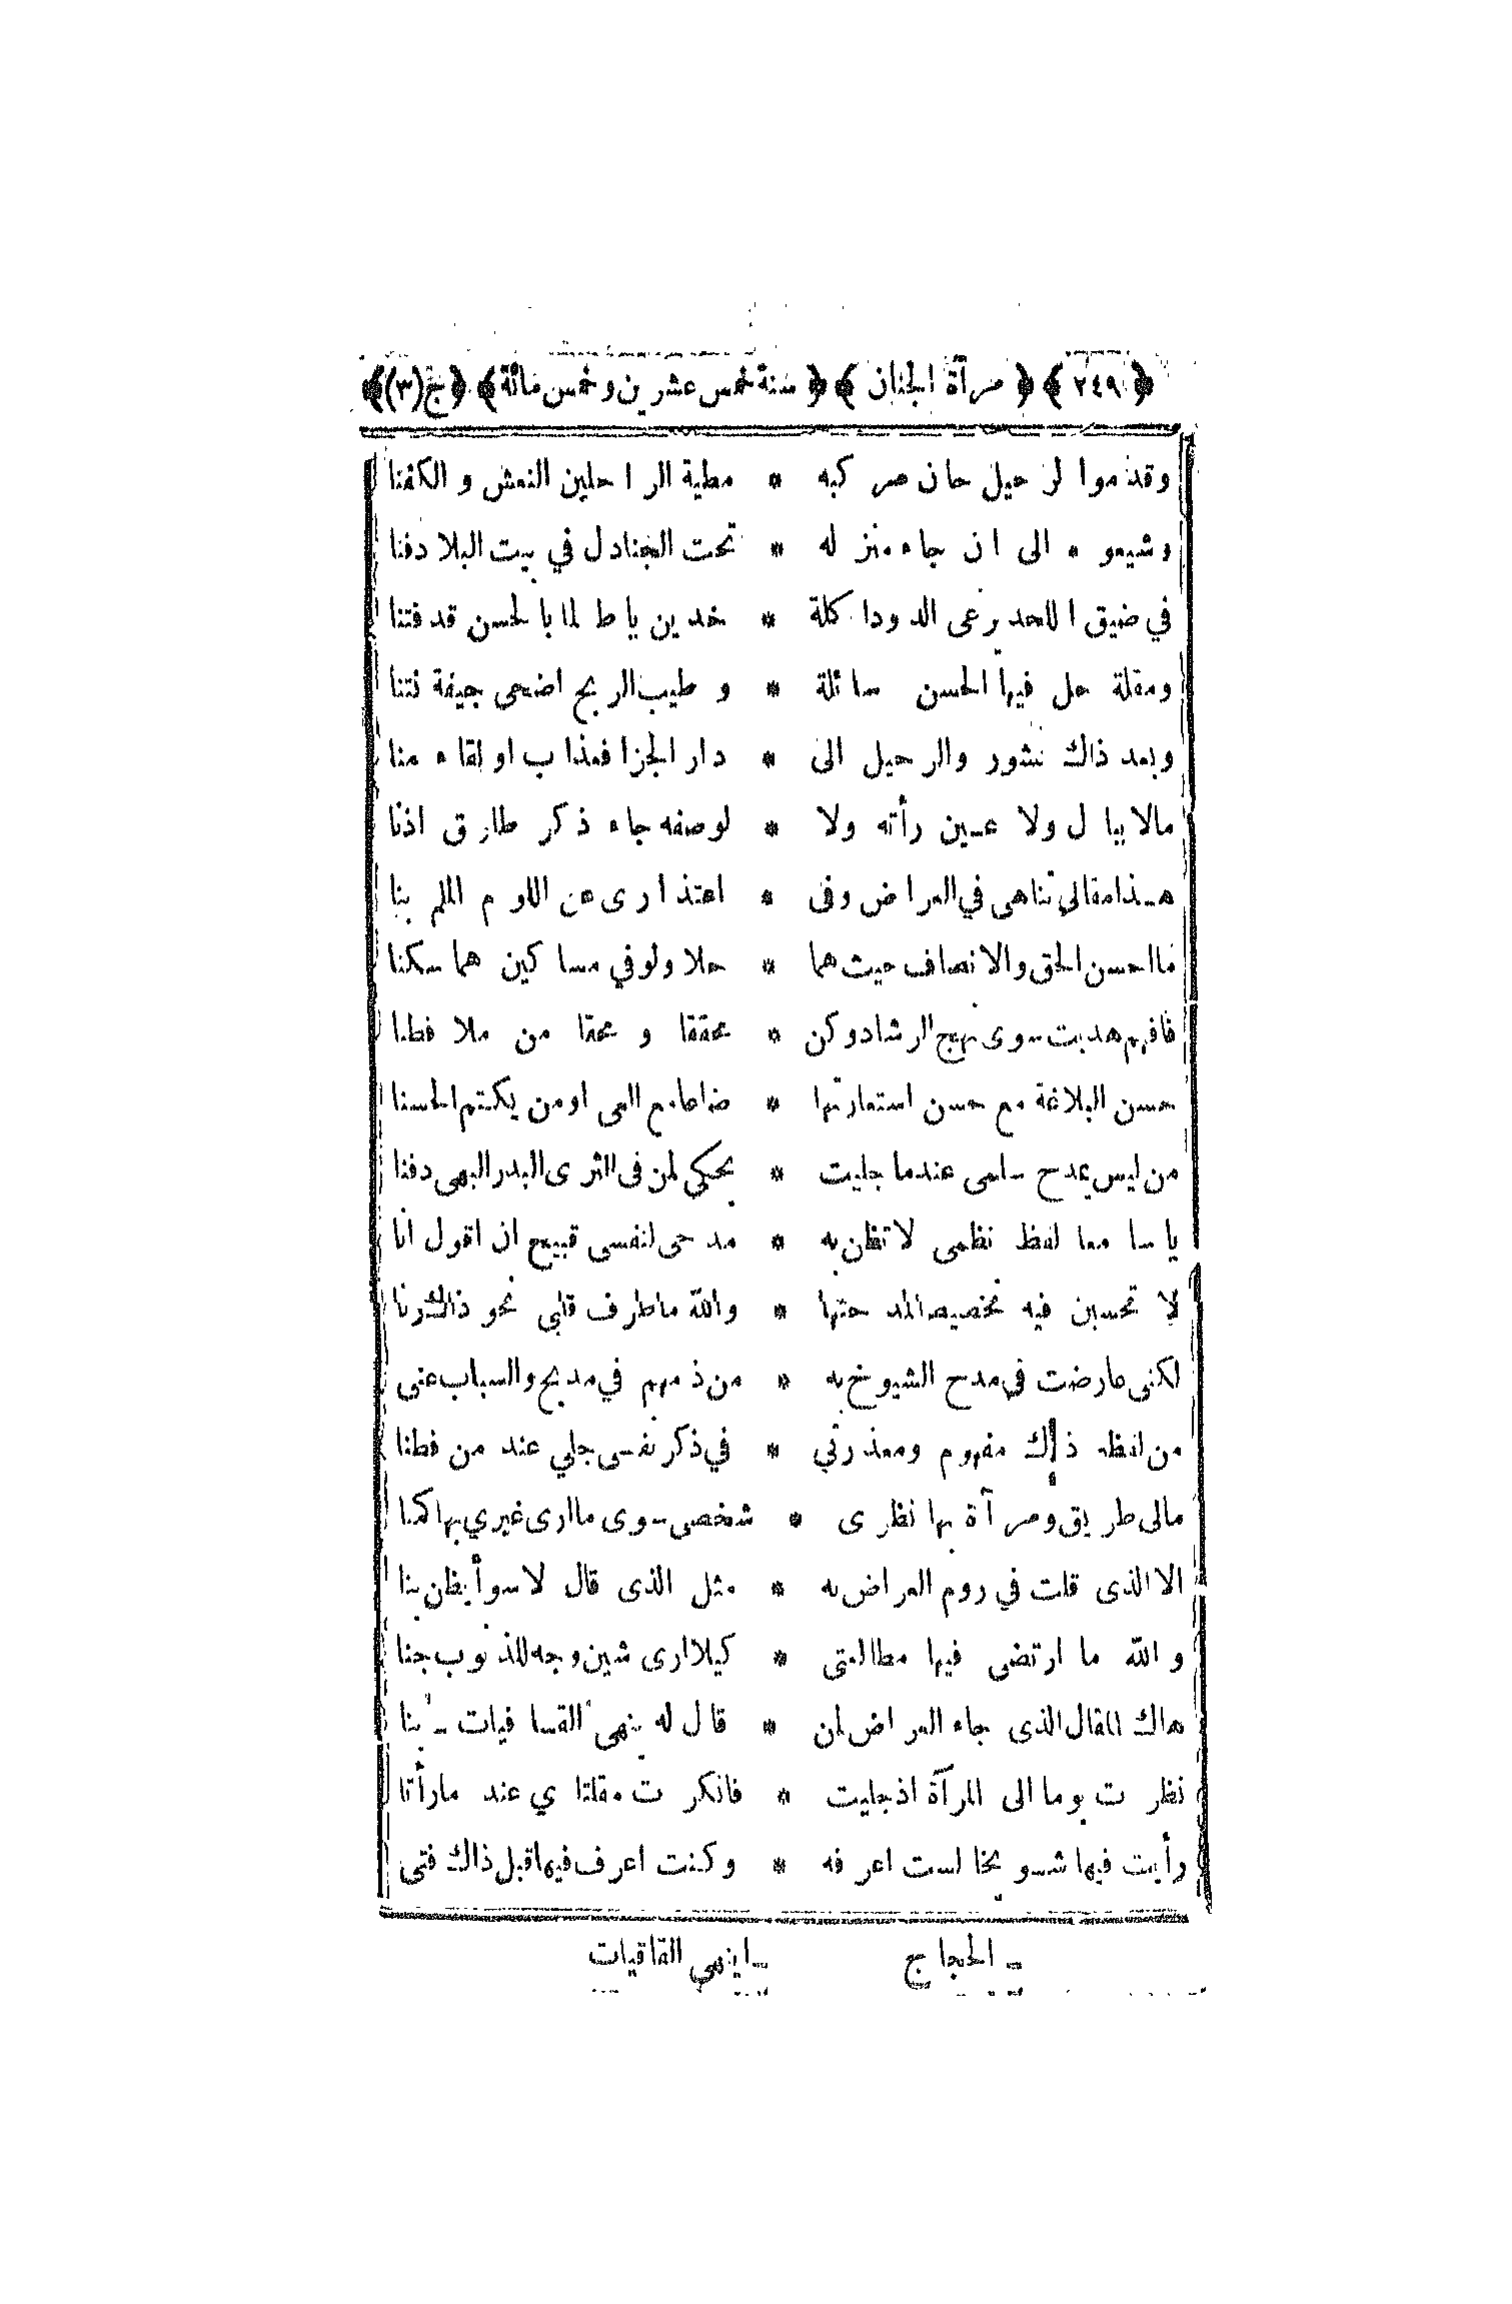 ﴿٢٤٩﴾ ﴿مرآة الجنان﴾ ﴿سنة خمس عشرين و خمس مائة﴾ ﴿ج(٣)﴾
وقدموا لرحيل حان مركبه * مطية الراحلين النعش و الكفنا
وشيعوه الى ان جاء منزله * تحت الجنادل في بيت البلا دفنا
في ضيق اللحد يرعى الدود اكلة * خدين ياطالما بالحسن قد فتنا
ومقلة حل فيها الحسن سائلة * و طيب الريح اضحى جيفة نتنا
وبعد ذاك نشور والرحيل الى * دار الجزا فعذاب او لقاء منا
مالا ببال ولا عين رأته ولا * لوصفه جاء ذكر طارق اذنا
هذا مقالي تناهى في العراض وفى * اعتذارى عن اللوم الملم بنا
فما احسن الحق والانصاف حيث هما * حلا ولو في مساكين هما سكنا
فافهم هديت سوى نهج الرشاد وكن * محققا و محقا من ملا فطنا
حسن البلاغة مع حسن استعارتها * ضاعا مع العى او من يكتم الحسنا
من ليس يمدح سلمى عندما جليت * يحكي لمن فى الثرى البدر البهى دفنا
يا سامعا لفظ نظمى لا تظن به * مدحى لنفسى قبيح ان اقول انا
لا تحسبن فيه تخصيص المدحتها * والله ما طرف قلبى نحو ذاك رنا
لكنى عارضت في مدح الشيوخ به * من ذمهم في مديح والسباب عنى
من لفظه ذلك مفهوم ومعذرتي * في ذكر نفسى جلي عند من فطنا
مالى طريق ومرآة بها نظرى * شخصى سوى ما ارى غيري بها كمنا
الا الذى قلت في روم العراض به * مثل الذى قال لا سوأ يظن بنا
و الله ما ارتضى فيها مطالعتى * كيلا ارى شين وجه للذنوب جنا
هاك المقال الذى جاء العراض لمن * قال له ينهى القسافيات بنا
نظرت يوما الى المرآة اذ جليت * فانكرت مقلتاي عند ما رأتا
رأيت فيها شويخا لست اعرفه * وكنت اعرف فيها قبل ذاك فتى
ـ الحجاج ـ اينهي القاقيات